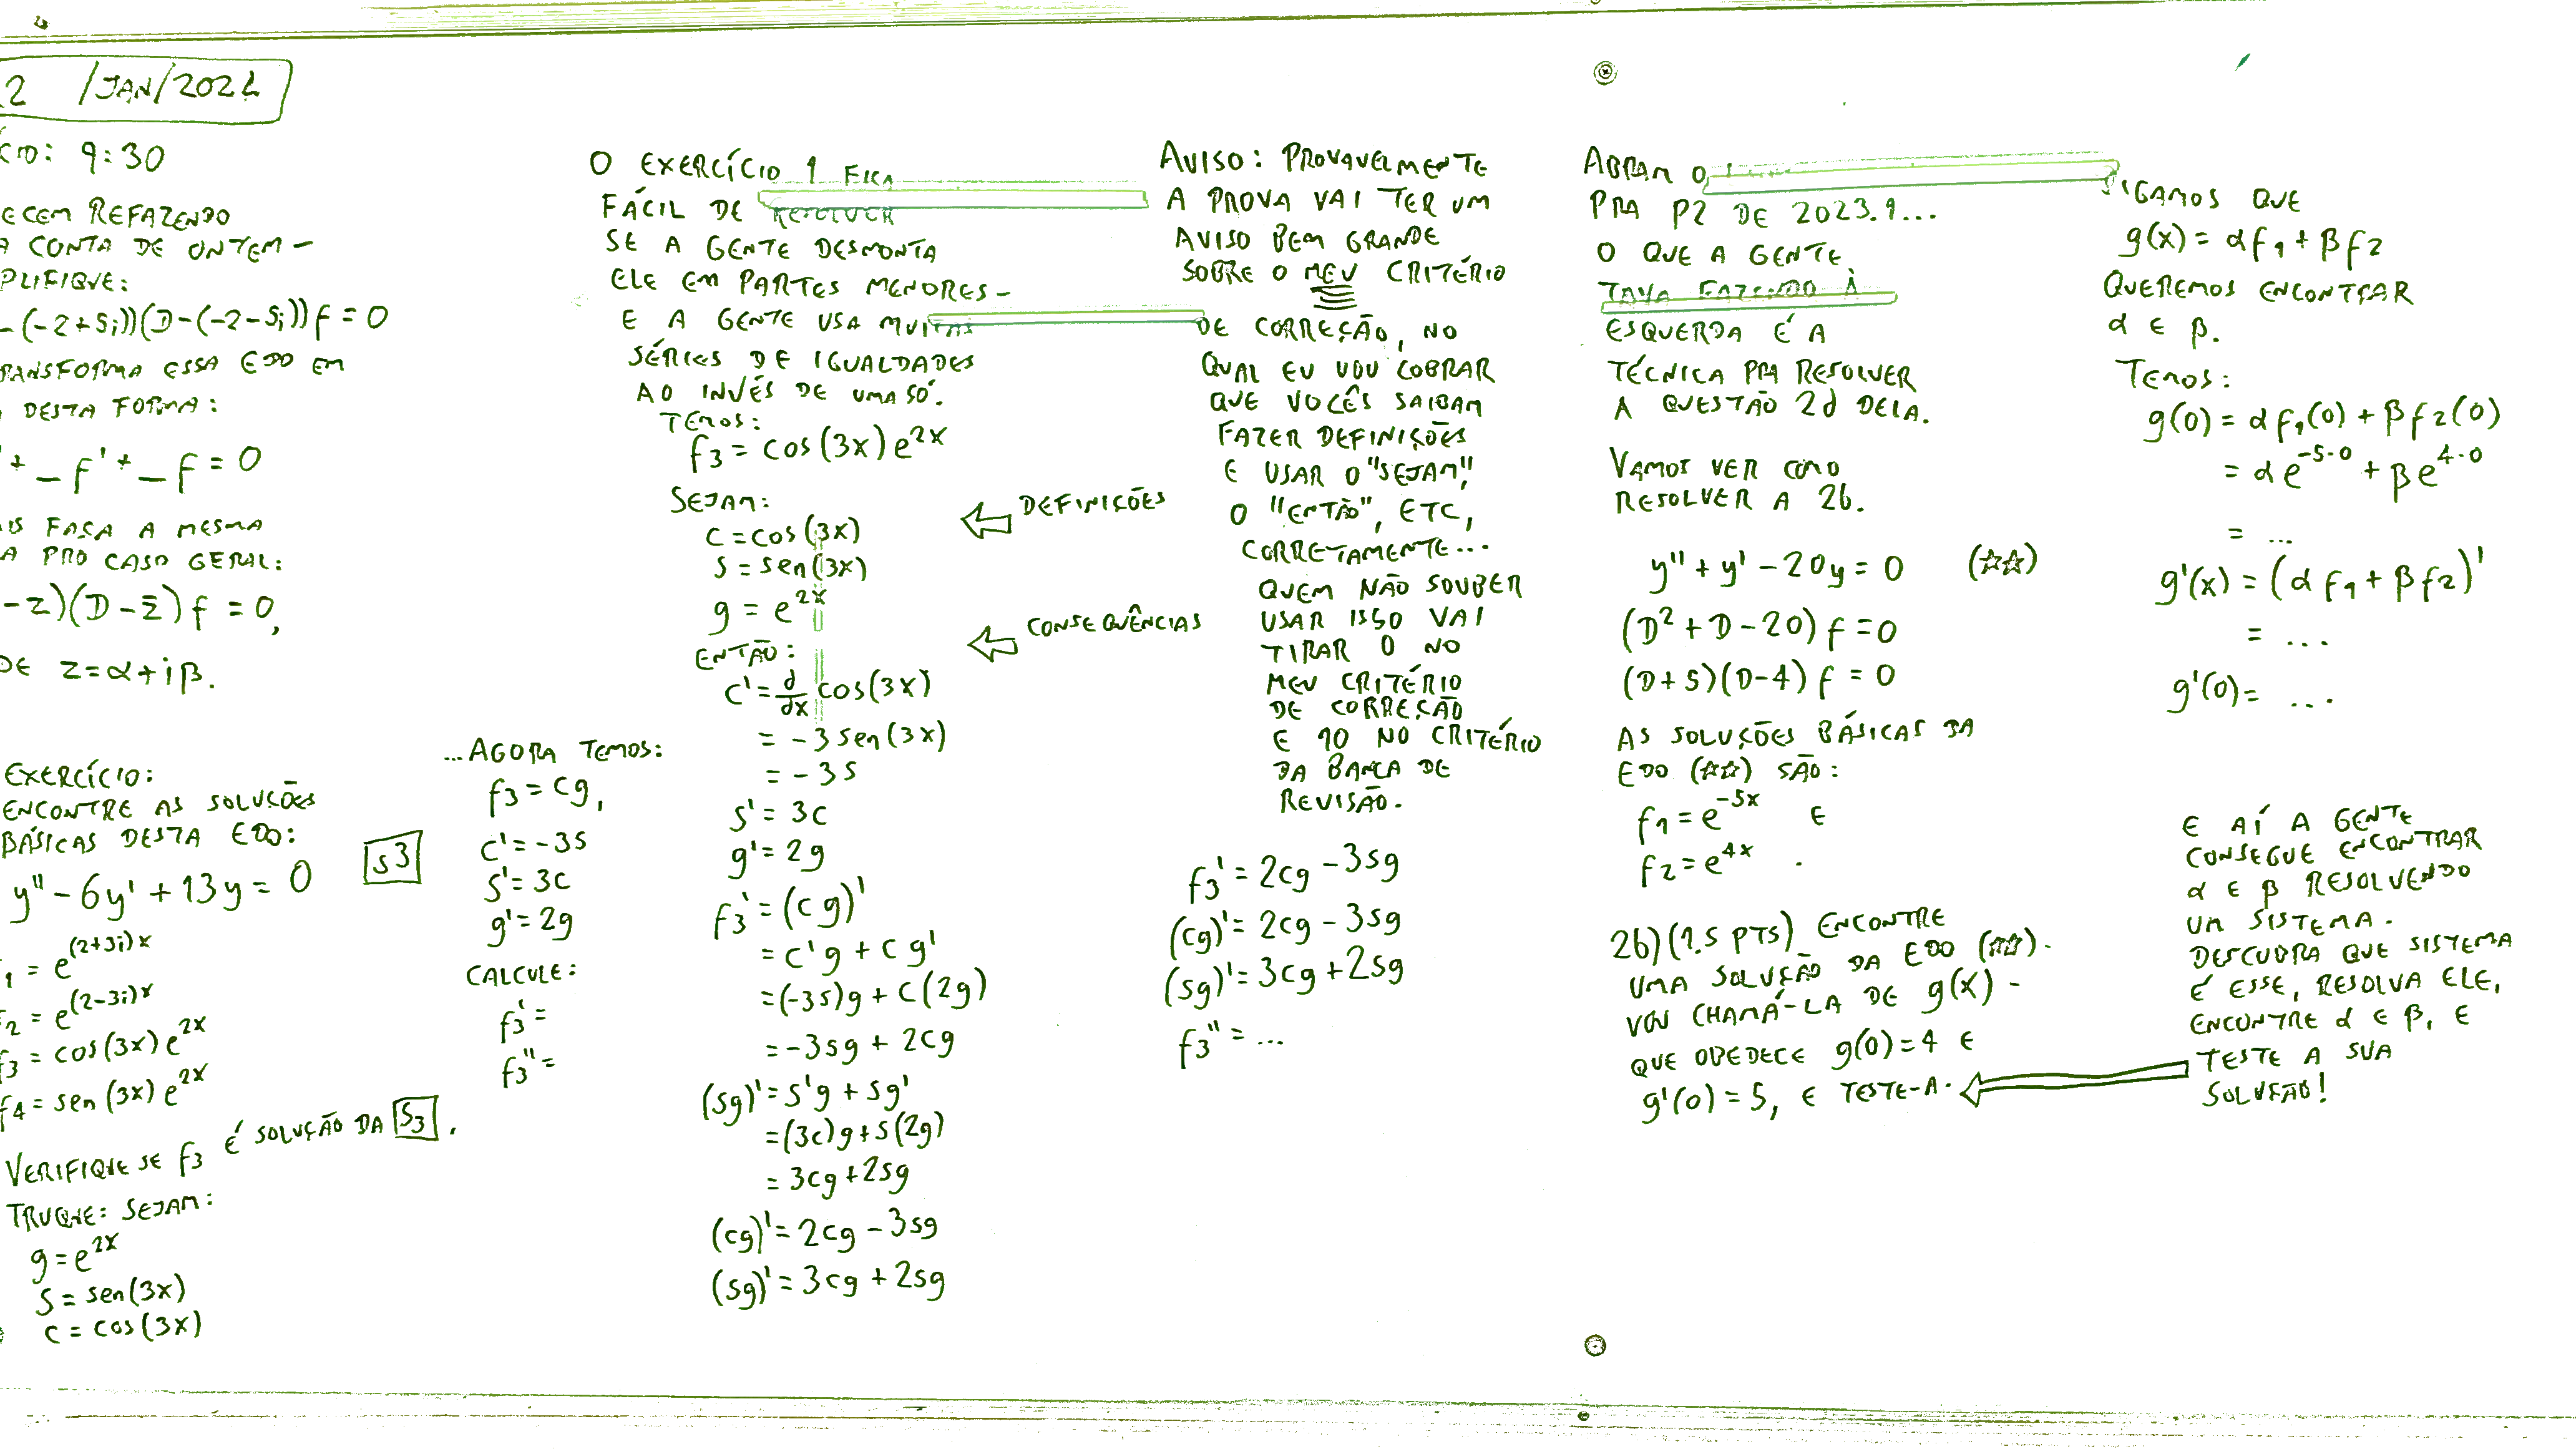 2 /JAN/202
CIO: 9:30
ECEM REFAZENDO
A CONTA DE ONTEM –
PLIFIQUE:
-(-2+5i))(D-(-2-5i))f = 0
RANSFORMA ESSA EDO EM
DESTA FORMA:
'+ _ f' + _ f = 0
IS FAÇA A MESMA
A PRO CASO GERAL:
-z)(D-z̄)f = 0,
DE z=α+iβ.
EXERCÍCIO:
ENCONTRE AS SOLUÇÕES
BÁSICAS DESTA EDO:
y''-6y'+13y = 0 [S3]
1 = e^{(2+3i)x}
2 = e^{(2-3i)x}
f3 = cos(3x)e^{2x}
f4 = sen(3x)e^{2x}
VERIFIQUE SE f3 É SOLUÇÃO DA [S3].
TRUQUE: SEJAM:
g = e^{2x}
S = sen(3x)
C = cos(3x)
...AGORA TEMOS:
f3 = cg,
c' = -3s
s' = 3c
g' = 2g
CALCULE:
f3' =
f3'' =
O EXERCÍCIO 1 FICA
FÁCIL DE RESOLVER
SE A GENTE DESMONTA
ELE EM PARTES MENORES –
E A GENTE USA MUITAS
SÉRIES DE IGUALDADES
AO INVÉS DE UMA SÓ.
TEMOS:
f3 = cos(3x)e^{2x}
SEJAM:
c = cos(3x)
s = sen(3x)
g = e^{2x}
⇐ DEFINIÇÕES
ENTÃO:
⇐ CONSEQUÊNCIAS
c' = d/dx cos(3x)
= -3 sen(3x)
= -3s
s' = 3c
g' = 2g
f3' = (cg)'
= c'g + cg'
= (-3s)g + c(2g)
= -3sg + 2cg
(sg)' = s'g + sg'
= (3c)g + s(2g)
= 3cg + 2sg
(cg)' = 2cg - 3sg
(sg)' = 3cg + 2sg
AVISO: PROVAVELMENTE
A PROVA VAI TER UM
AVISO BEM GRANDE
SOBRE O MEU CRITÉRIO
DE CORREÇÃO, NO
QUAL EU VOU COBRAR
QUE VOCÊS SAIBAM
FAZER DEFINIÇÕES
E USAR O "SEJAM",
O "ENTÃO", ETC,
CORRETAMENTE...
QUEM NÃO SOUBER
USAR ISSO VAI
TIRAR 0 NO
MEU CRITÉRIO
DE CORREÇÃO
E 10 NO CRITÉRIO
DA BANCA DE
REVISÃO.
f3' = 2cg - 3sg
(cg)' = 2cg - 3sg
(sg)' = 3cg + 2sg
f3'' = ...
ABRAM O
PRA P2 DE 2023.1...
O QUE A GENTE
TAVA FAZENDO À
ESQUERDA É A
TÉCNICA PRA RESOLVER
A QUESTÃO 2d DELA.
VAMOS VER COMO
RESOLVER A 2b.
y'' + y' - 20y = 0 (☆☆)
(D² + D - 20)f = 0
(D+5)(D-4)f = 0
AS SOLUÇÕES BÁSICAS DA
EDO (☆☆) SÃO:
f1 = e^{-5x} E
f2 = e^{4x}.
2b) (1.5 PTS) ENCONTRE
UMA SOLUÇÃO DA EDO (☆☆).
VOU CHAMÁ-LA DE g(x) –
QUE OBEDECE g(0)=4 E
g'(0)=5, E TESTE-A.
DIGAMOS QUE
g(x) = αf1 + βf2
QUEREMOS ENCONTRAR
α E β.
TEMOS:
g(0) = αf1(0) + βf2(0)
= αe^{-5·0} + βe^{4·0}
= ...
g'(x) = (αf1 + βf2)'
= ...
g'(0) = ...
E AÍ A GENTE
CONSEGUE ENCONTRAR
α E β RESOLVENDO
UM SISTEMA.
DESCUBRA QUE SISTEMA
É ESSE, RESOLVA ELE,
ENCONTRE α E β, E
TESTE A SUA
SOLUÇÃO!